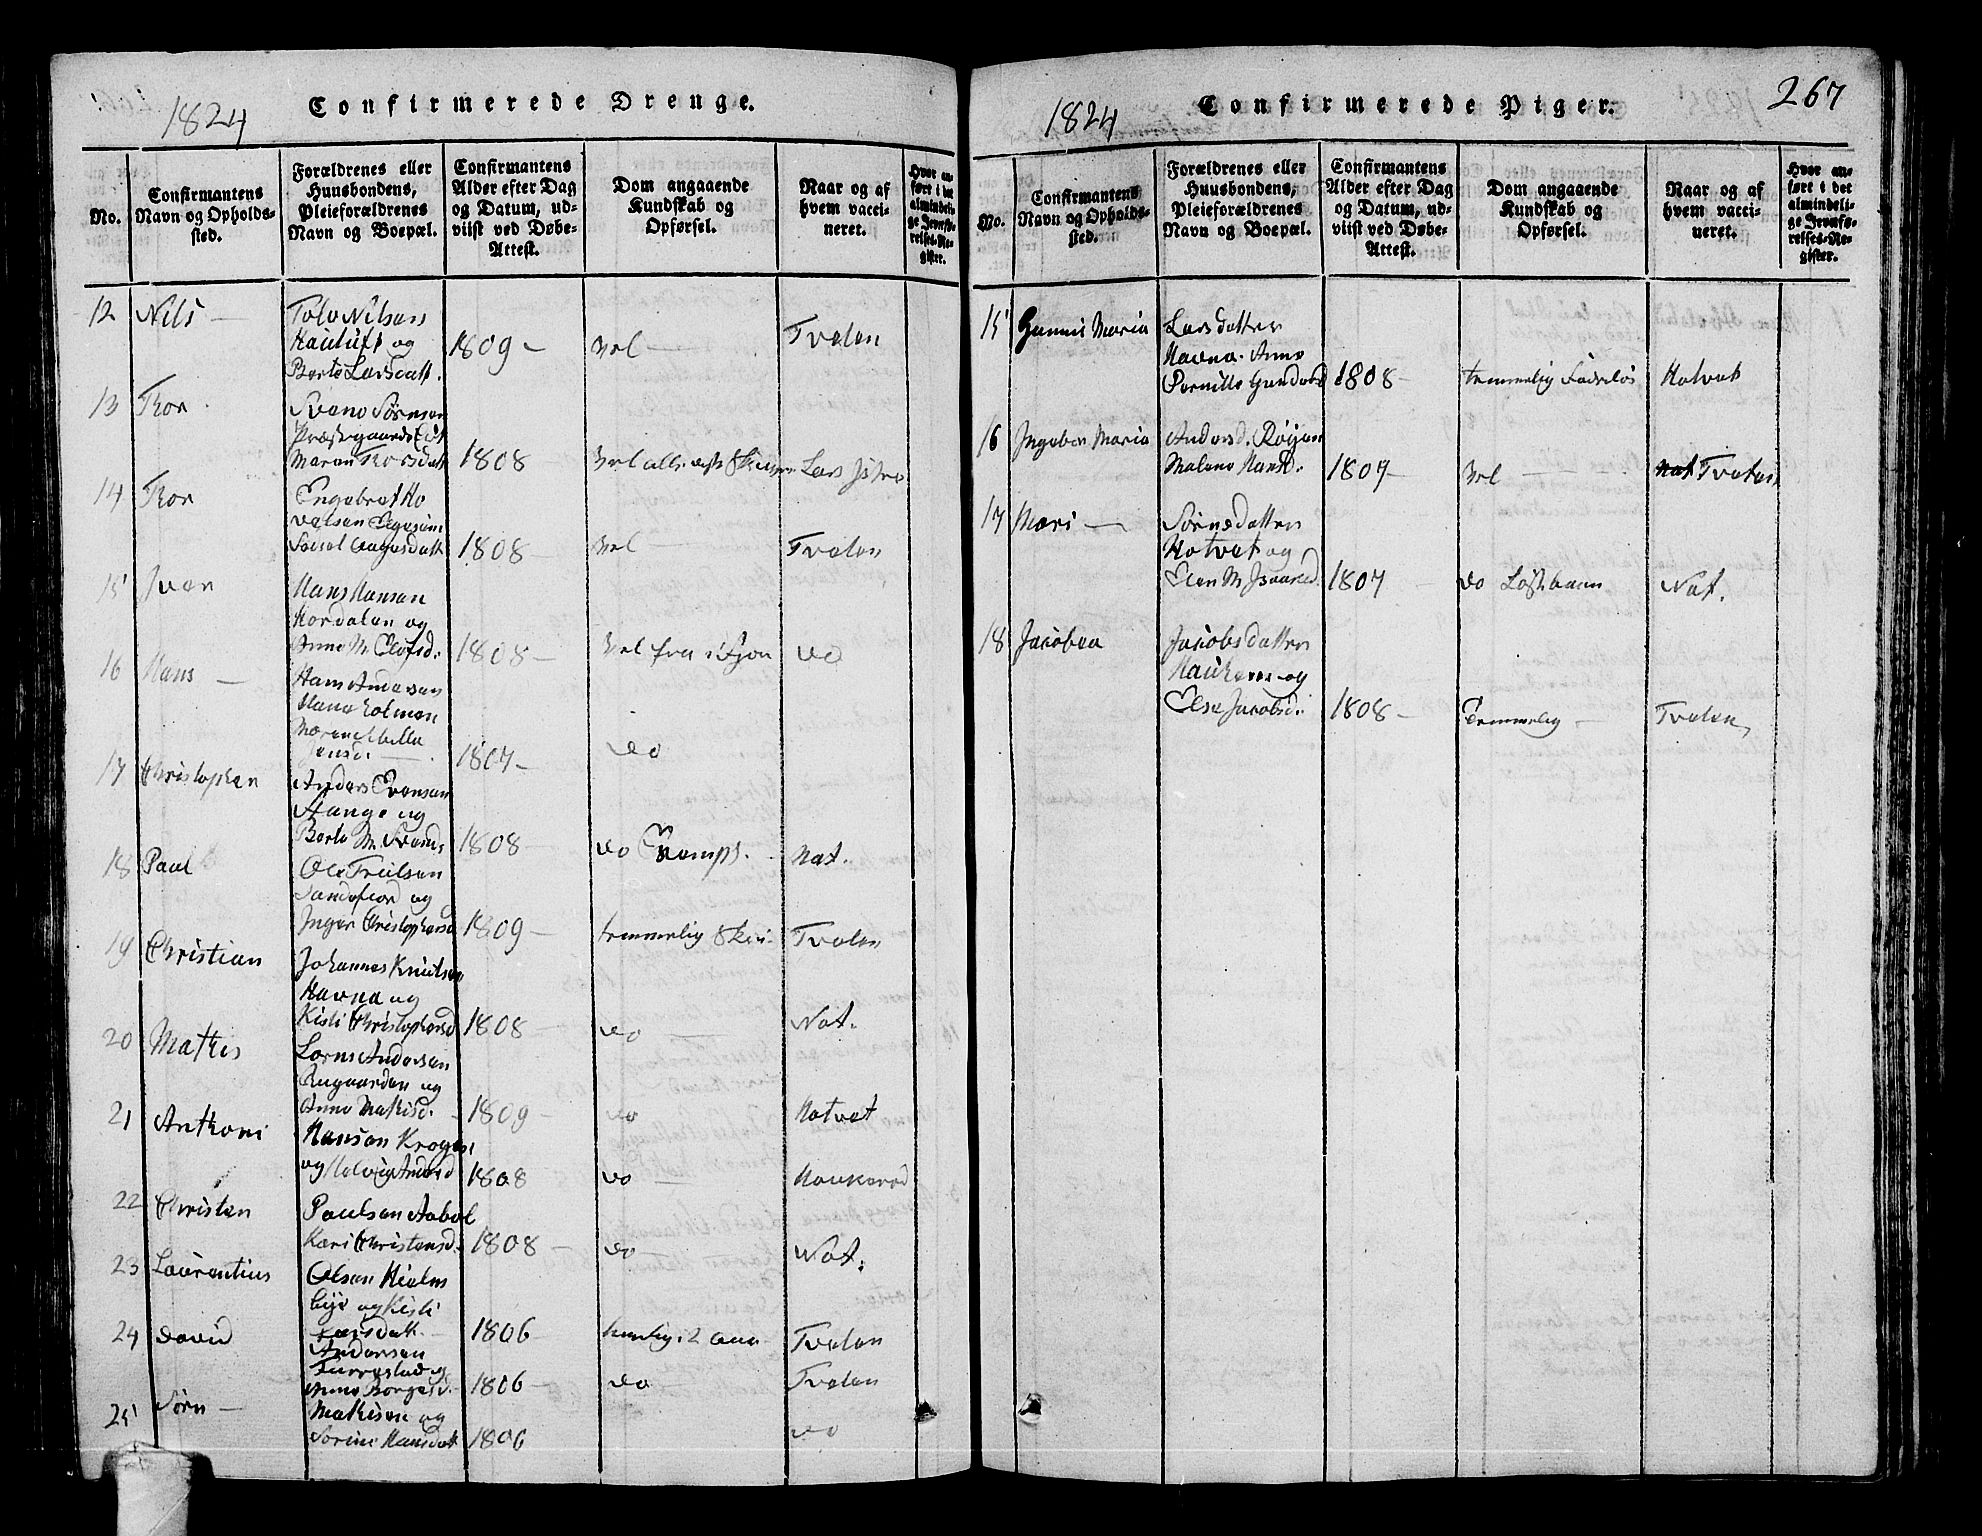 1824 Confirmerede Drenge.
No.
Confirmantens Navn og Opholdssted.
Forældrenes eller Huusbondens, Pleieforældrenes Navn og Boepæl.
Confirmantens Alder efter Dag og Datum, udviist ved Døbe-Attest.
Dom angaaende Kundskab og Opførsel.
Naar og af hvem vaccineret.
Hvor anført i det almindelige Jevnførelses-Register.
12 Nils —
Nilsen
og
Berte Larsdatt.
1809 —
Vel —
Tveten
13 Thor
Svend Sørnsen
Maren Thorsdatt
1808
Vel
Lars
14 Thor
Engebret Ho
velsen
1808 —
Vel —
Tveten
15 Iver
Hans Hansen
Nordalen og
Anne M. Elofsd.
1808 —
Vel
do
16 Hans —
Hans Andersen
Maren
Jensd. —
1807 —
do
17 Christopher
Anders Evensen
Stange og
Berte M. Svends
1808
do
Nat.
18 Paul
Ole Trulsen
Sandefiord og
Inger Christophersd
1809 —
temmelig
Tveten
19 Christian
Johannes Knutsen
Havna og
Kisti Christophersd
1808 —
do —
Nat.
20 Mathis
Andersen
og
Anne Mathisd.
1809 —
do
Hotvet
21 Anthoni
Hansen
og Andersd
1808
do —
Haukerød
22 Christen
Paulsen Aabol
Kari Christensd.
1808 —
do —
Nat.
23 Laurentius
Olsen Hielm
bye og Kisti
Larsdatt. —
1806 —
2
Tveten
24 David
Andersen
Furrestad og
Anne
1806 —
do
Tveten
25 Sørn —
Mathisen og
Sorine Hansdatt
1806
do
1824 Confirmerede Piger. 267
No.
Confirmantens Navn og Opholdssted.
Forældrenes eller Huusbondens, Pleieforældrenes Navn og Boepæl.
Confirmantens Alder efter Dag og Datum, udviist ved Døbe-Attest.
Dom angaaende Kundskab og Opførsel.
Naar og af hvem vaccineret.
Hvor anført i det almindelige Jevnførelses-Register.
15 Gunnil Maria
Larsdatter
Havna. Anne
Pernille
1808 —
temmelig
Hotvet
16 Ingebor Maria
Andersd. Røyen
Malene Hansd.
1807 —
Vel —
Tveten
17 Mari —
Sørnsdatter
Hotvet og
Elen M. Isaaksd.
1807
do
Nat.
18 Jacobea
Jacobsdatter
Haukerød og
Else Jacobsd.
1808 —
Temmelig —
Tveten